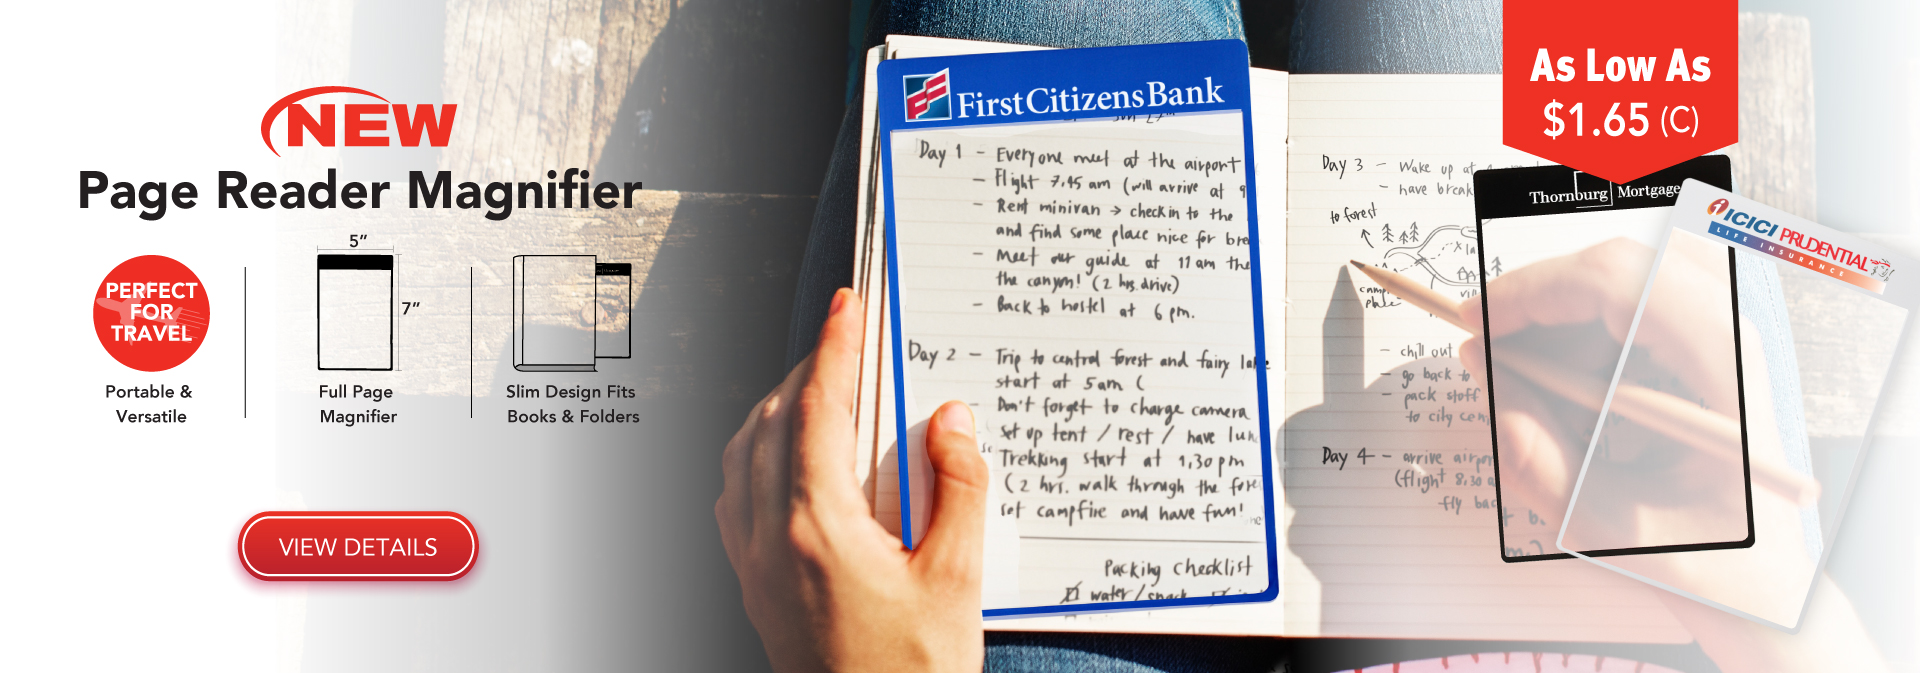 NEW
Page Reader Magnifier
PERFECT
FOR
TRAVEL
Portable &
Versatile
5”
7”
Full Page
Magnifier
Slim Design Fits
Books & Folders
VIEW DETAILS
First Citizens Bank
Day 1 - Everyone meet at the airport
- Flight 7.45 am (will arrive at 9
- Rent minivan → check in to the
and find some place nice for bre
- Meet our guide at 11 am the
the canyon! (2 hrs. drive)
- Back to hostel at 6 pm.
Day 2 - Trip to central forest and fairy lake
start at 5am (
- Don't forget to charge camera
- set up tent / rest / have lun
Trekking start at 1.30 pm
(2 hrs. walk through the fore
set campfire and have fun!
Packing checklist
water/snack
Day 3 - Wake up at
- have break
to forest
camp
place
- chill out
- go back to
- pack stuff
to city cen
Day 4 - arrive airpor
(flight 8.30 a
fly bac
As Low As
$1.65 (C)
Thornburg Mortgage
ICICI PRUDENTIAL
LIFE INSURANCE